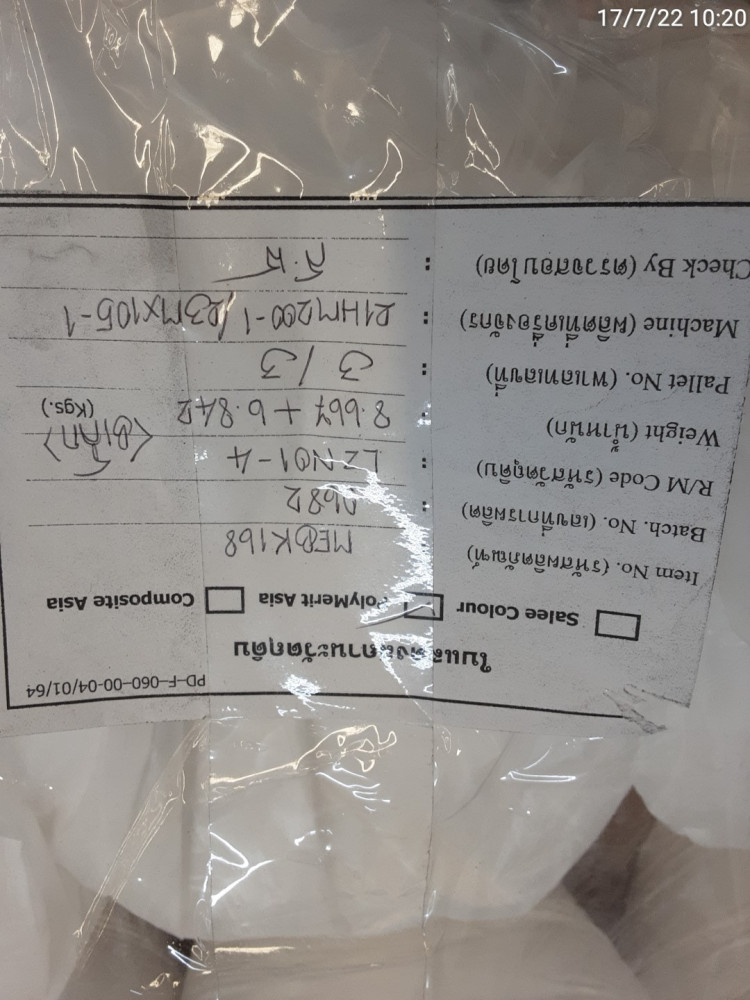 17/7/22 10:20
PD-F-060-00-04/01/64
ใบแสดงสถานะวัตถุดิบ
Salee Colour PolyMerit Asia Composite Asia
Item No. (รหัสผลิตภัณฑ์) : MEBK168
Batch. No. (เลขที่การผลิต) : 0682
R/M Code (รหัสวัตถุดิบ) : LZN01-4
Weight (น้ำหนัก) : 8.667 + 6.842 (Kgs.)
Pallet No. (พาเลทเลขที่) : 3/3
Machine (ผลิตที่เครื่องจักร) : 21HM200-1/23MX105-1
Check By (ตรวจสอบโดย) :